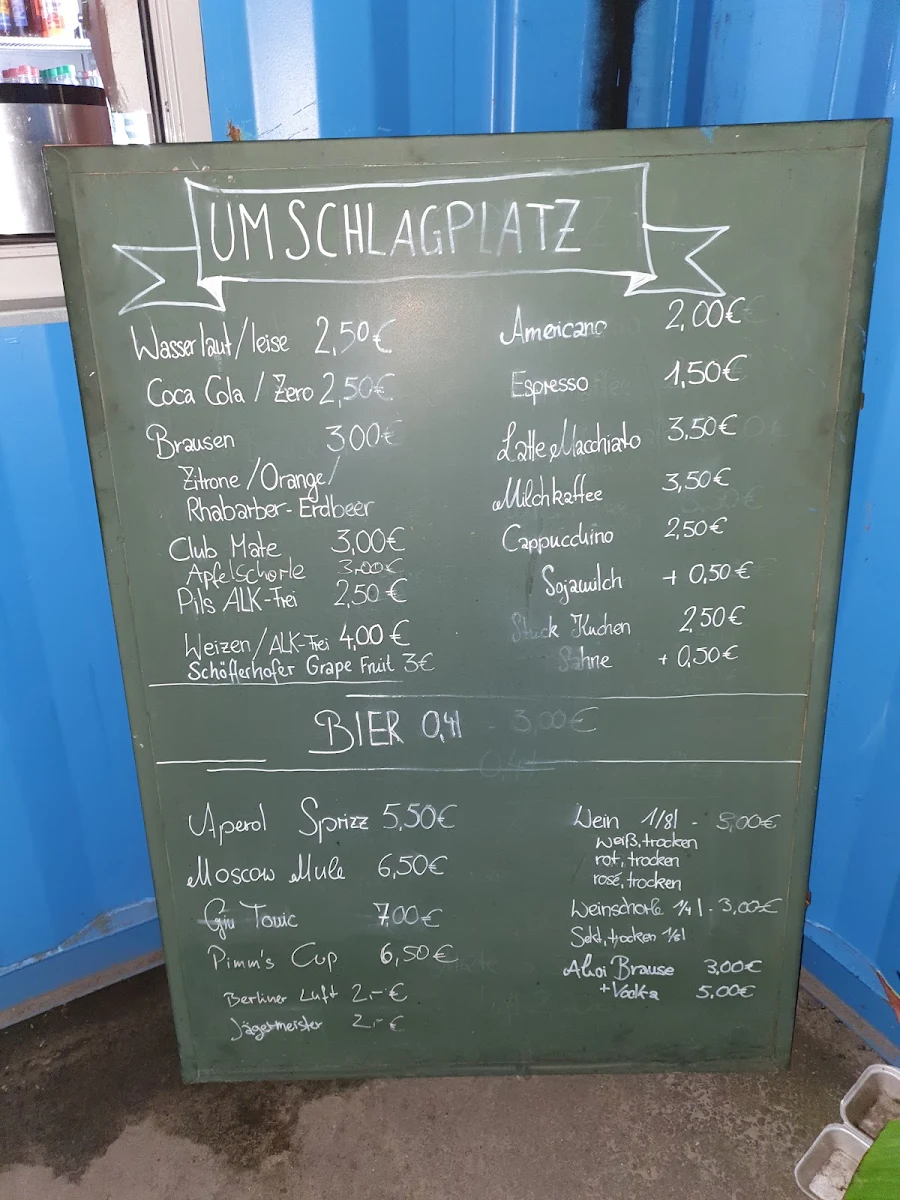 UMSCHLAGPLATZ
Wasser laut/leise 2,50€
Coca Cola / Zero 2,50€
Brausen 3 00€
Zitrone /Orange/
Rhabarber-Erdbeer
Club Mate 3,00€
Apfelschorle 3,00€
Pils ALK-frei 2,50€
Weizen/ALK-frei 4,00€
Schöfferhofer Grape Fruit 3€
Americano 2,00€
Espresso 1,50€
Latte Macchiato 3,50€
Milchkaffee 3,50€
Cappucchino 2,50€
Sojamilch + 0,50€
Stück Kuchen 2,50€
Sahne + 0,50€
BIER 0,4l - 3,00€
Aperol Sprizz 5,50€
Moscow Mule 6,50€
Gin Tonic 7,00€
Pimm's Cup 6,50€
Berliner Luft 2,-€
Jägermeister 2,-€
Wein 1/8l - 3,00€
weiß, trocken
rot, trocken
rosé, trocken
Weinschorle 1/4l - 3,00€
Sekt, trocken 1/8l
Ahoi Brause 3,00€
+Vodka 5,00€